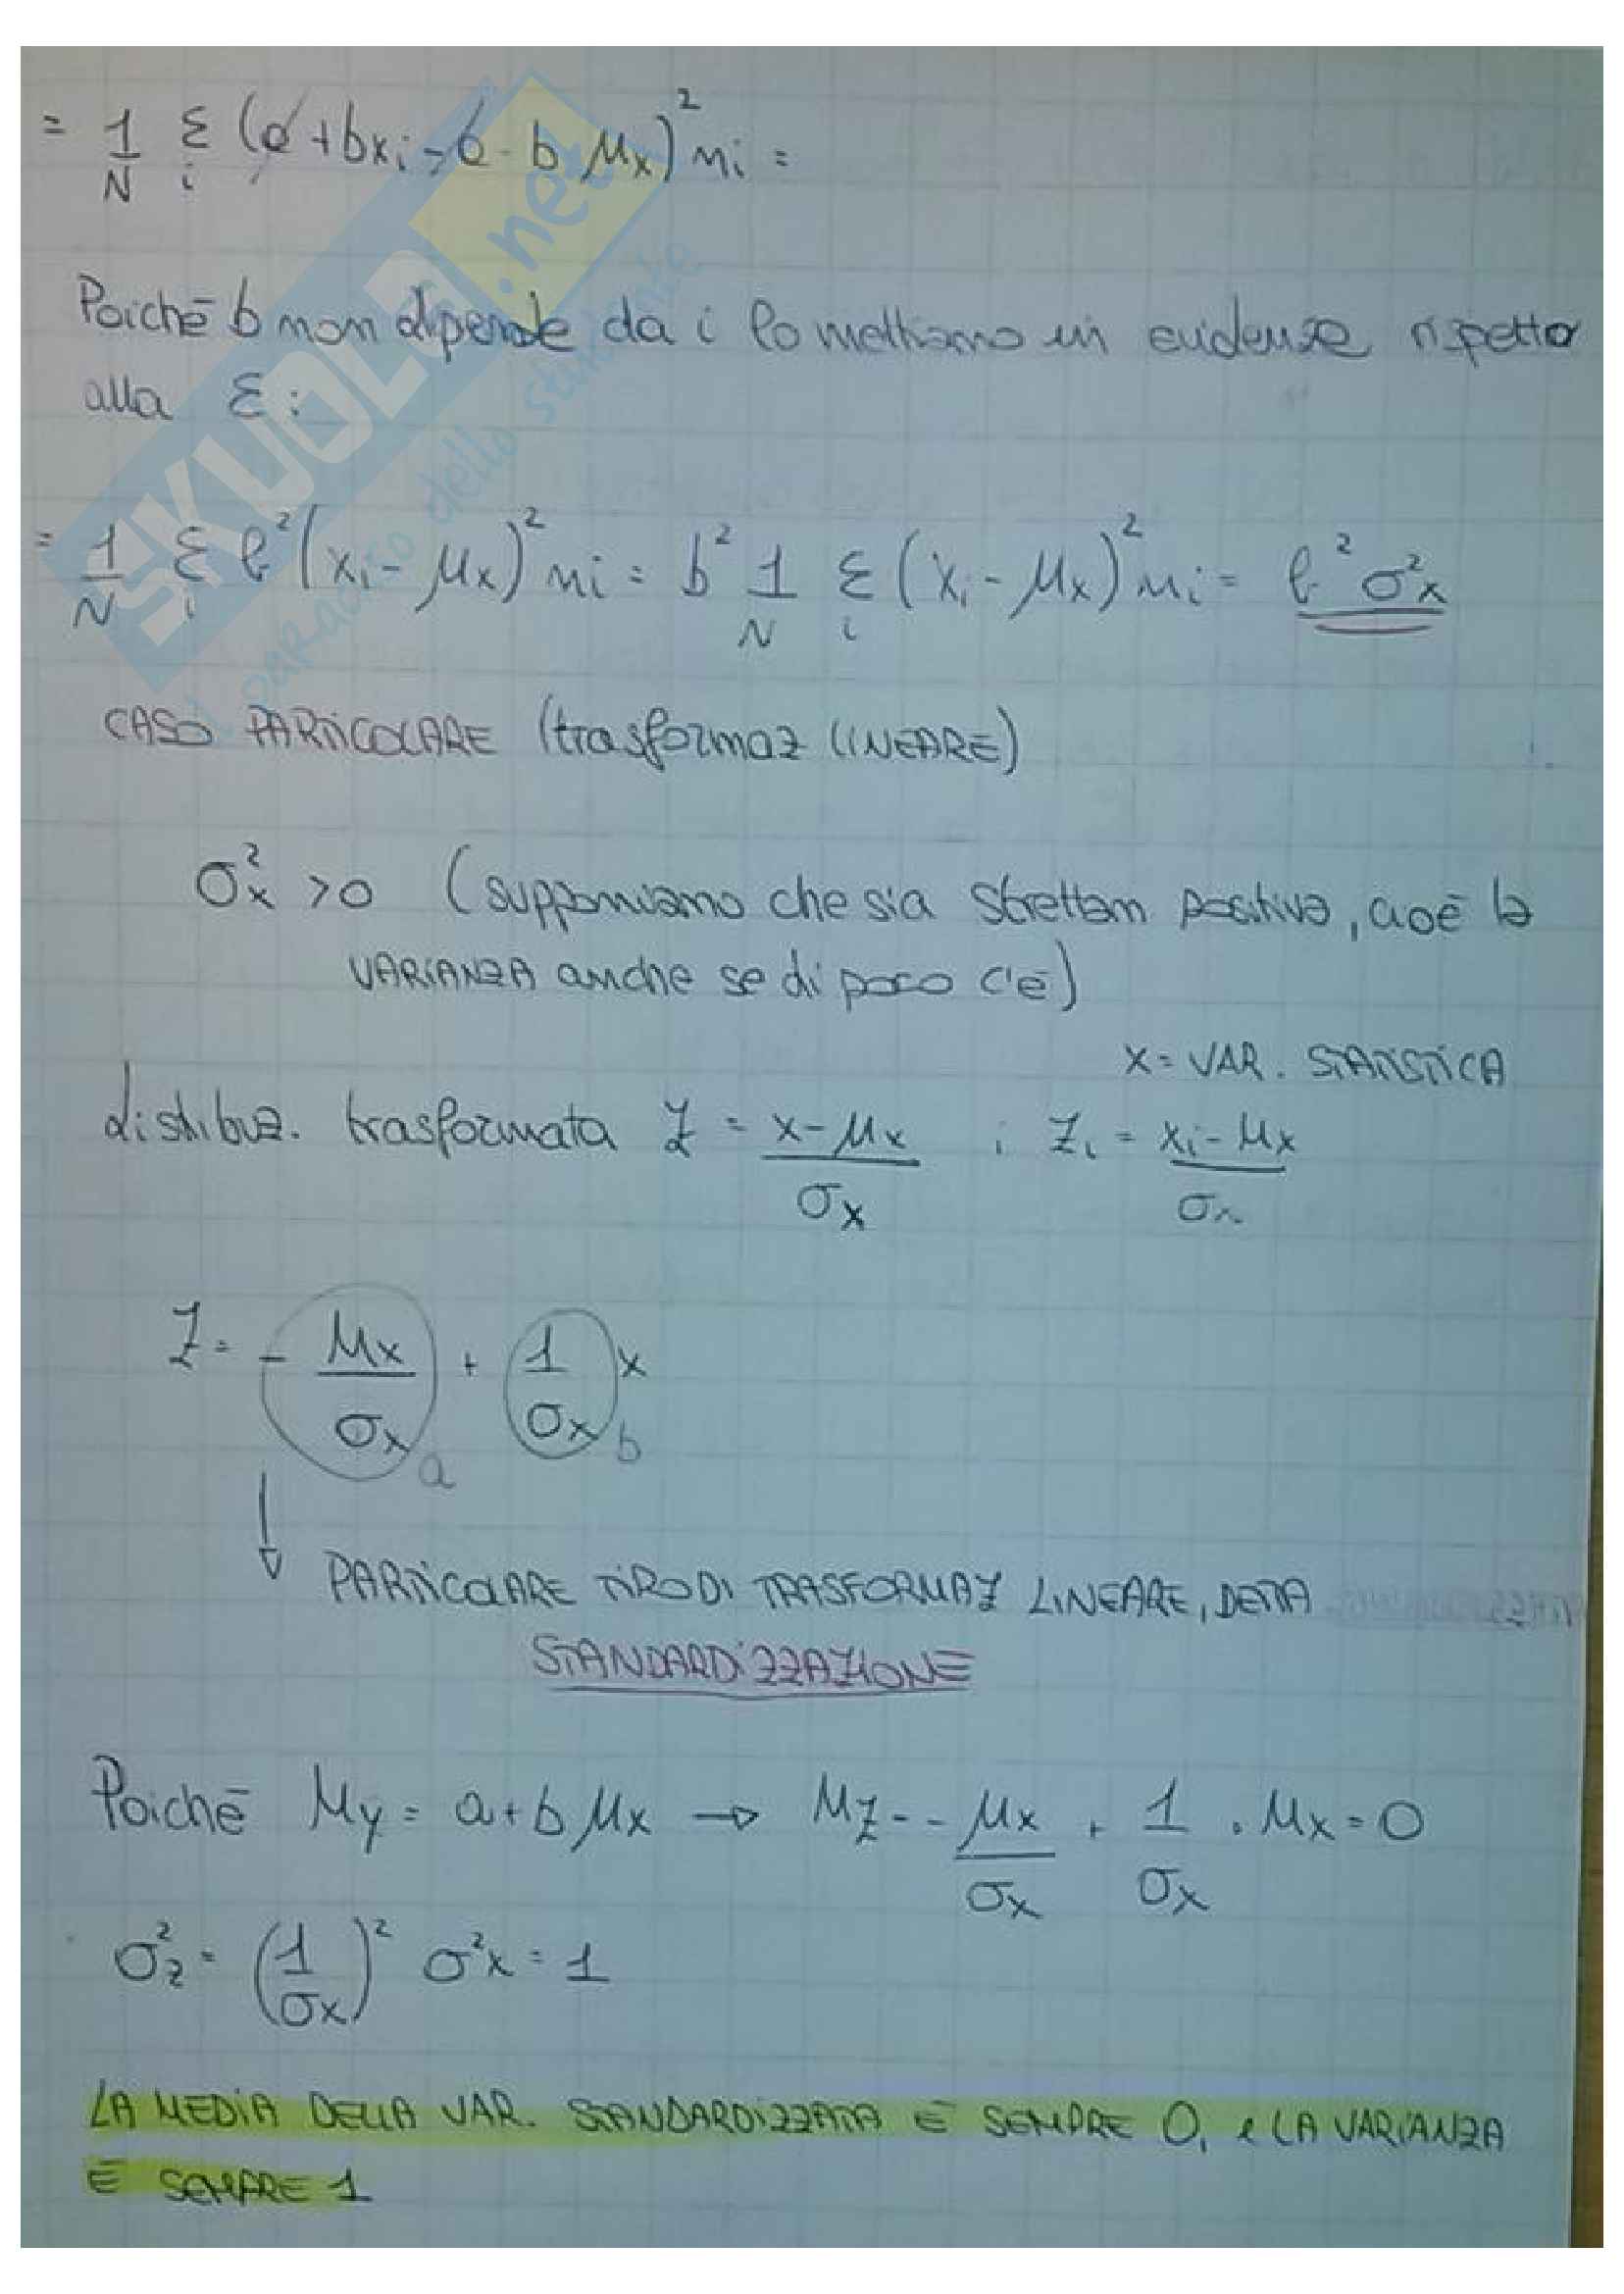 = 1/N Σi (a + bxi - a - b μx)² ni =
Poichē b non dipende da i lo mettiamo in evidenza rispetto
alla Σ:
= 1/N Σi b² (xi - μx)² ni = b² 1/N Σi (xi - μx)² ni = b² σ²x
CASO PARTICOLARE (trasformaz LINEARE)
σ²x >0 (supponiamo che sia strettam positiva, cioē la
VARIANZA anche se di poco c'ē)
X = VAR. STATISTICA
distribuz. trasformata Z = x - μx / σx ; Zi = xi - μx / σx
Z = - μx/σx + 1/σx x
a b
PARTICOLARE TIPO DI TRASFORMAZ LINEARE, DETTA
STANDARDIZZAZIONE
Poichē μy = a + b μx → μZ = - μx/σx + 1/σx · μx = 0
σ²z = (1/σx)² σ²x = 1
LA MEDIA DELLA VAR. STANDARDIZZATA Ē SEMPRE 0, e LA VARIANZA
Ē SEMPRE 1
SKUOLA.net
il paradiso dello studente